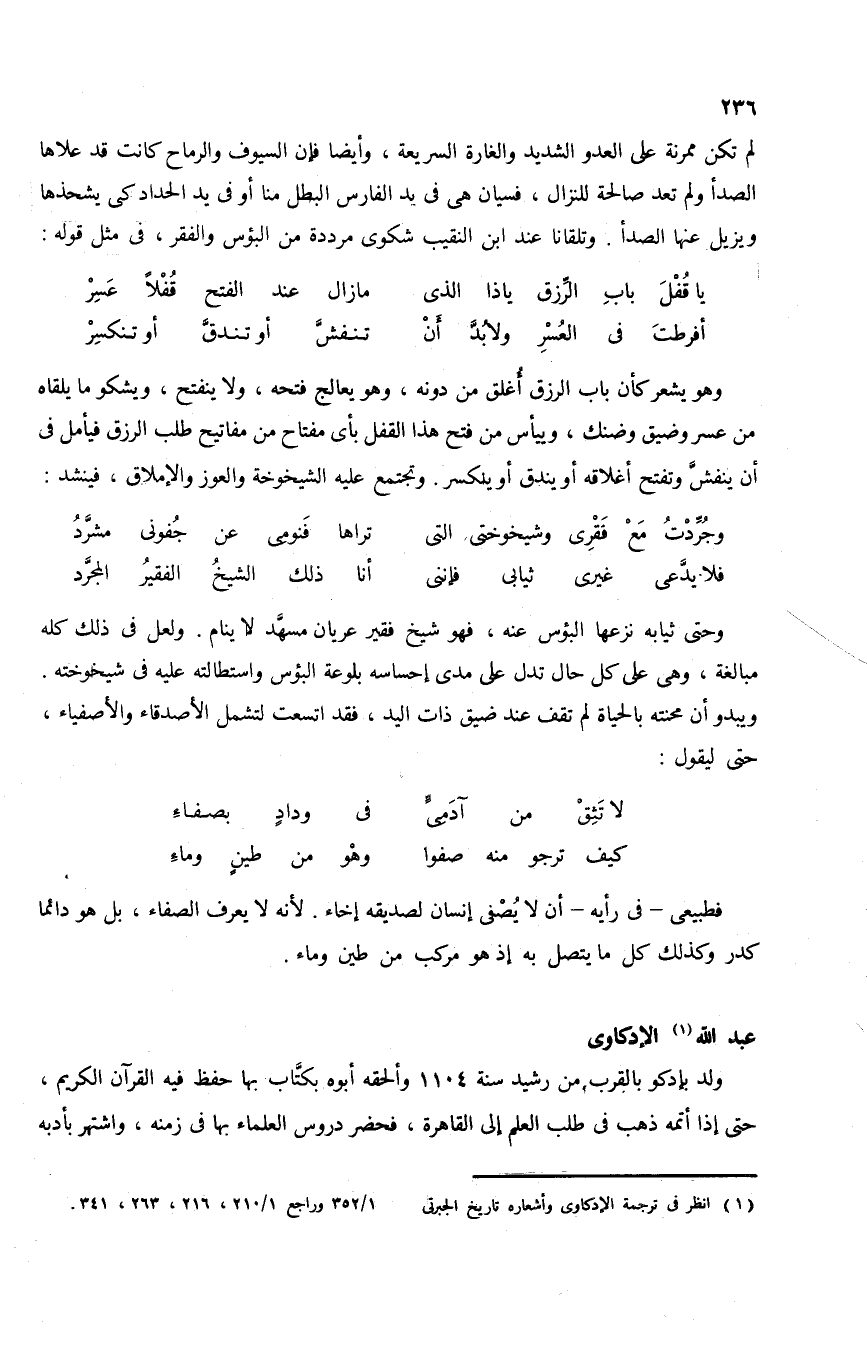 ٢٣٦
لم تكن ممرنة على العدو الشديد والغارة السريعة ، وأيضا فإن السيوف والرماح كانت قد علاها
الصدأ ولم تعد صالحة للنزال ، فسيان هى فى يد الفارس البطل منا أو فى يد الحداد كى يشحذها
ويزيل عنها الصدأ . وتلقانا عند ابن النقيب شكوى مرددة من البؤس والفقر ، فى مثل قوله :
يا قُفْلَ بابِ الرِّزق ياذا الذى مازال عند الفتح قُفْلاً عَسِرْ
أفرطتَ فى العُسْرِ ولابُدَّ أَنْ تنفشَّ أو تندقَّ أو تنكسِرْ
وهو يشعر كأن باب الرزق أُغلق من دونه ، وهو يعالج فتحه ، ولا ينفتح ، ويشكو ما يلقاه
من عسر وضيق وضنك ، وييأس من فتح هذا القفل بأى مفتاح من مفاتيح طلب الرزق فيأمل فى
أن ينفشَّ وتفتح أغلاقه أو يندق أو ينكسر . وتجتمع عليه الشيخوخة والعوز والإملاق ، فينشد :
وجُرِّدْتُ مَعْ فَقْرِى وشيخوختى التى تراها فَنومى عن جُفونى مشرَّدُ
فلا يدَّعى غيرى ثيابى فإننى أنا ذلك الشيخُ الفقيرُ المجرَّد
وحتى ثيابه نزعها البؤس عنه ، فهو شيخ فقير عريان مسهَّد لا ينام . ولعل فى ذلك كله
مبالغة ، وهى على كل حال تدل على مدى إحساسه بلوعة البؤس واستطالته عليه فى شيخوخته .
ويبدو أن محنته بالحياة لم تقف عند ضيق ذات اليد ، فقد اتسعت لتشمل الأصدقاء والأصفياء ،
حتى ليقول :
لا تَثِقْ من آدَمِىٍّ فى ودادٍ بصفاءِ
كيف ترجو منه صفوا وهْو من طينٍ وماءِ
فطبيعى – فى رأيه – أن لا يُصْفى إنسان لصديقه إخاء . لأنه لا يعرف الصفاء ، بل هو دائما
كدر وكذلك كل ما يتصل به إذ هو مركب من طين وماء .
عبد الله (١) الإدكاوى
ولد بإدكو بالقرب من رشيد سنة ١١٠٤ وألحقه أبوه بكتَّاب بها حفظ فيه القرآن الكريم ،
حتى إذا أتمه ذهب فى طلب العلم إلى القاهرة ، فحضر دروس العلماء بها فى زمنه ، واشتهر بأدبه
(١) انظر فى ترجمة الإدكاوى وأشعاره تاريخ الجبرتى ٣٥٢/١ وراجع ٢١٠/١ ، ٢١٦ ، ٢٦٣ ، ٣٤١ .